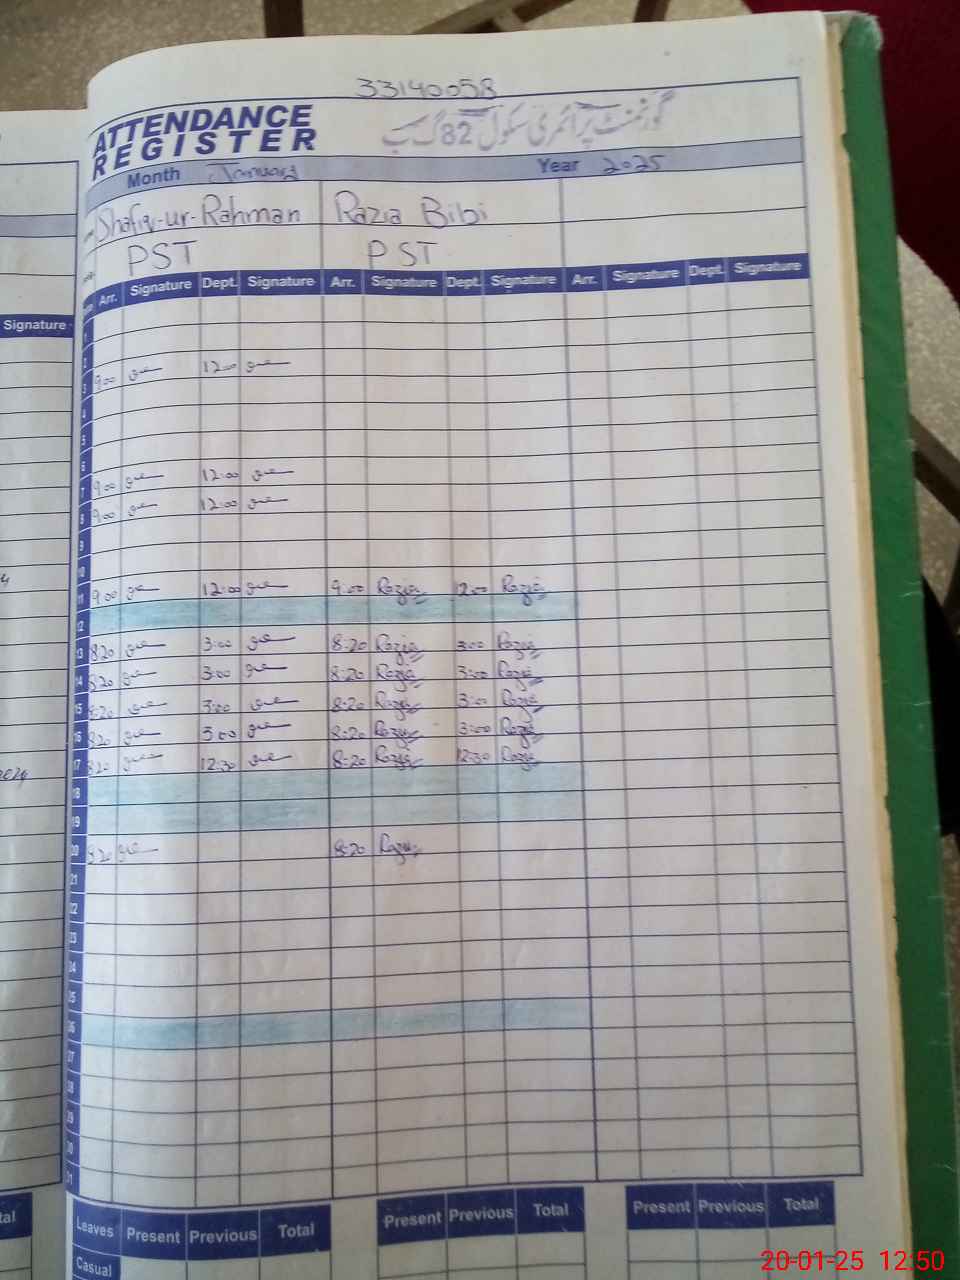 33140058
ATTENDANCE REGISTER
گورنمنٹ پرائمری سکول 82 گ ب
Month January Year 2025
Shafiq-ur-Rahman Razia Bibi
PST PST
Signature
Arr. Signature Dept. Signature Arr. Signature Dept. Signature Arr. Signature Dept. Signature
1
2
3 9:00 12:00
4
5
6
7 9:00 12:00
8 9:00 12:00
9
10
11 9:00 12:00 9:00 Razia 12:00 Razia
12
13 8:20 3:00 8:20 Razia 3:00 Razia
14 8:20 3:00 8:20 Razia 3:00 Razia
15 8:20 3:00 8:20 Razia 3:00 Razia
16 8:20 3:00 8:20 Razia 3:00 Razia
17 8:20 12:30 8:20 Razia 12:30 Razia
18
19
20 8:20 8:20 Razia
21
22
23
24
25
26
27
28
29
30
31
Leaves Present Previous Total Present Previous Total Present Previous Total
Casual
20-01-25 12:50